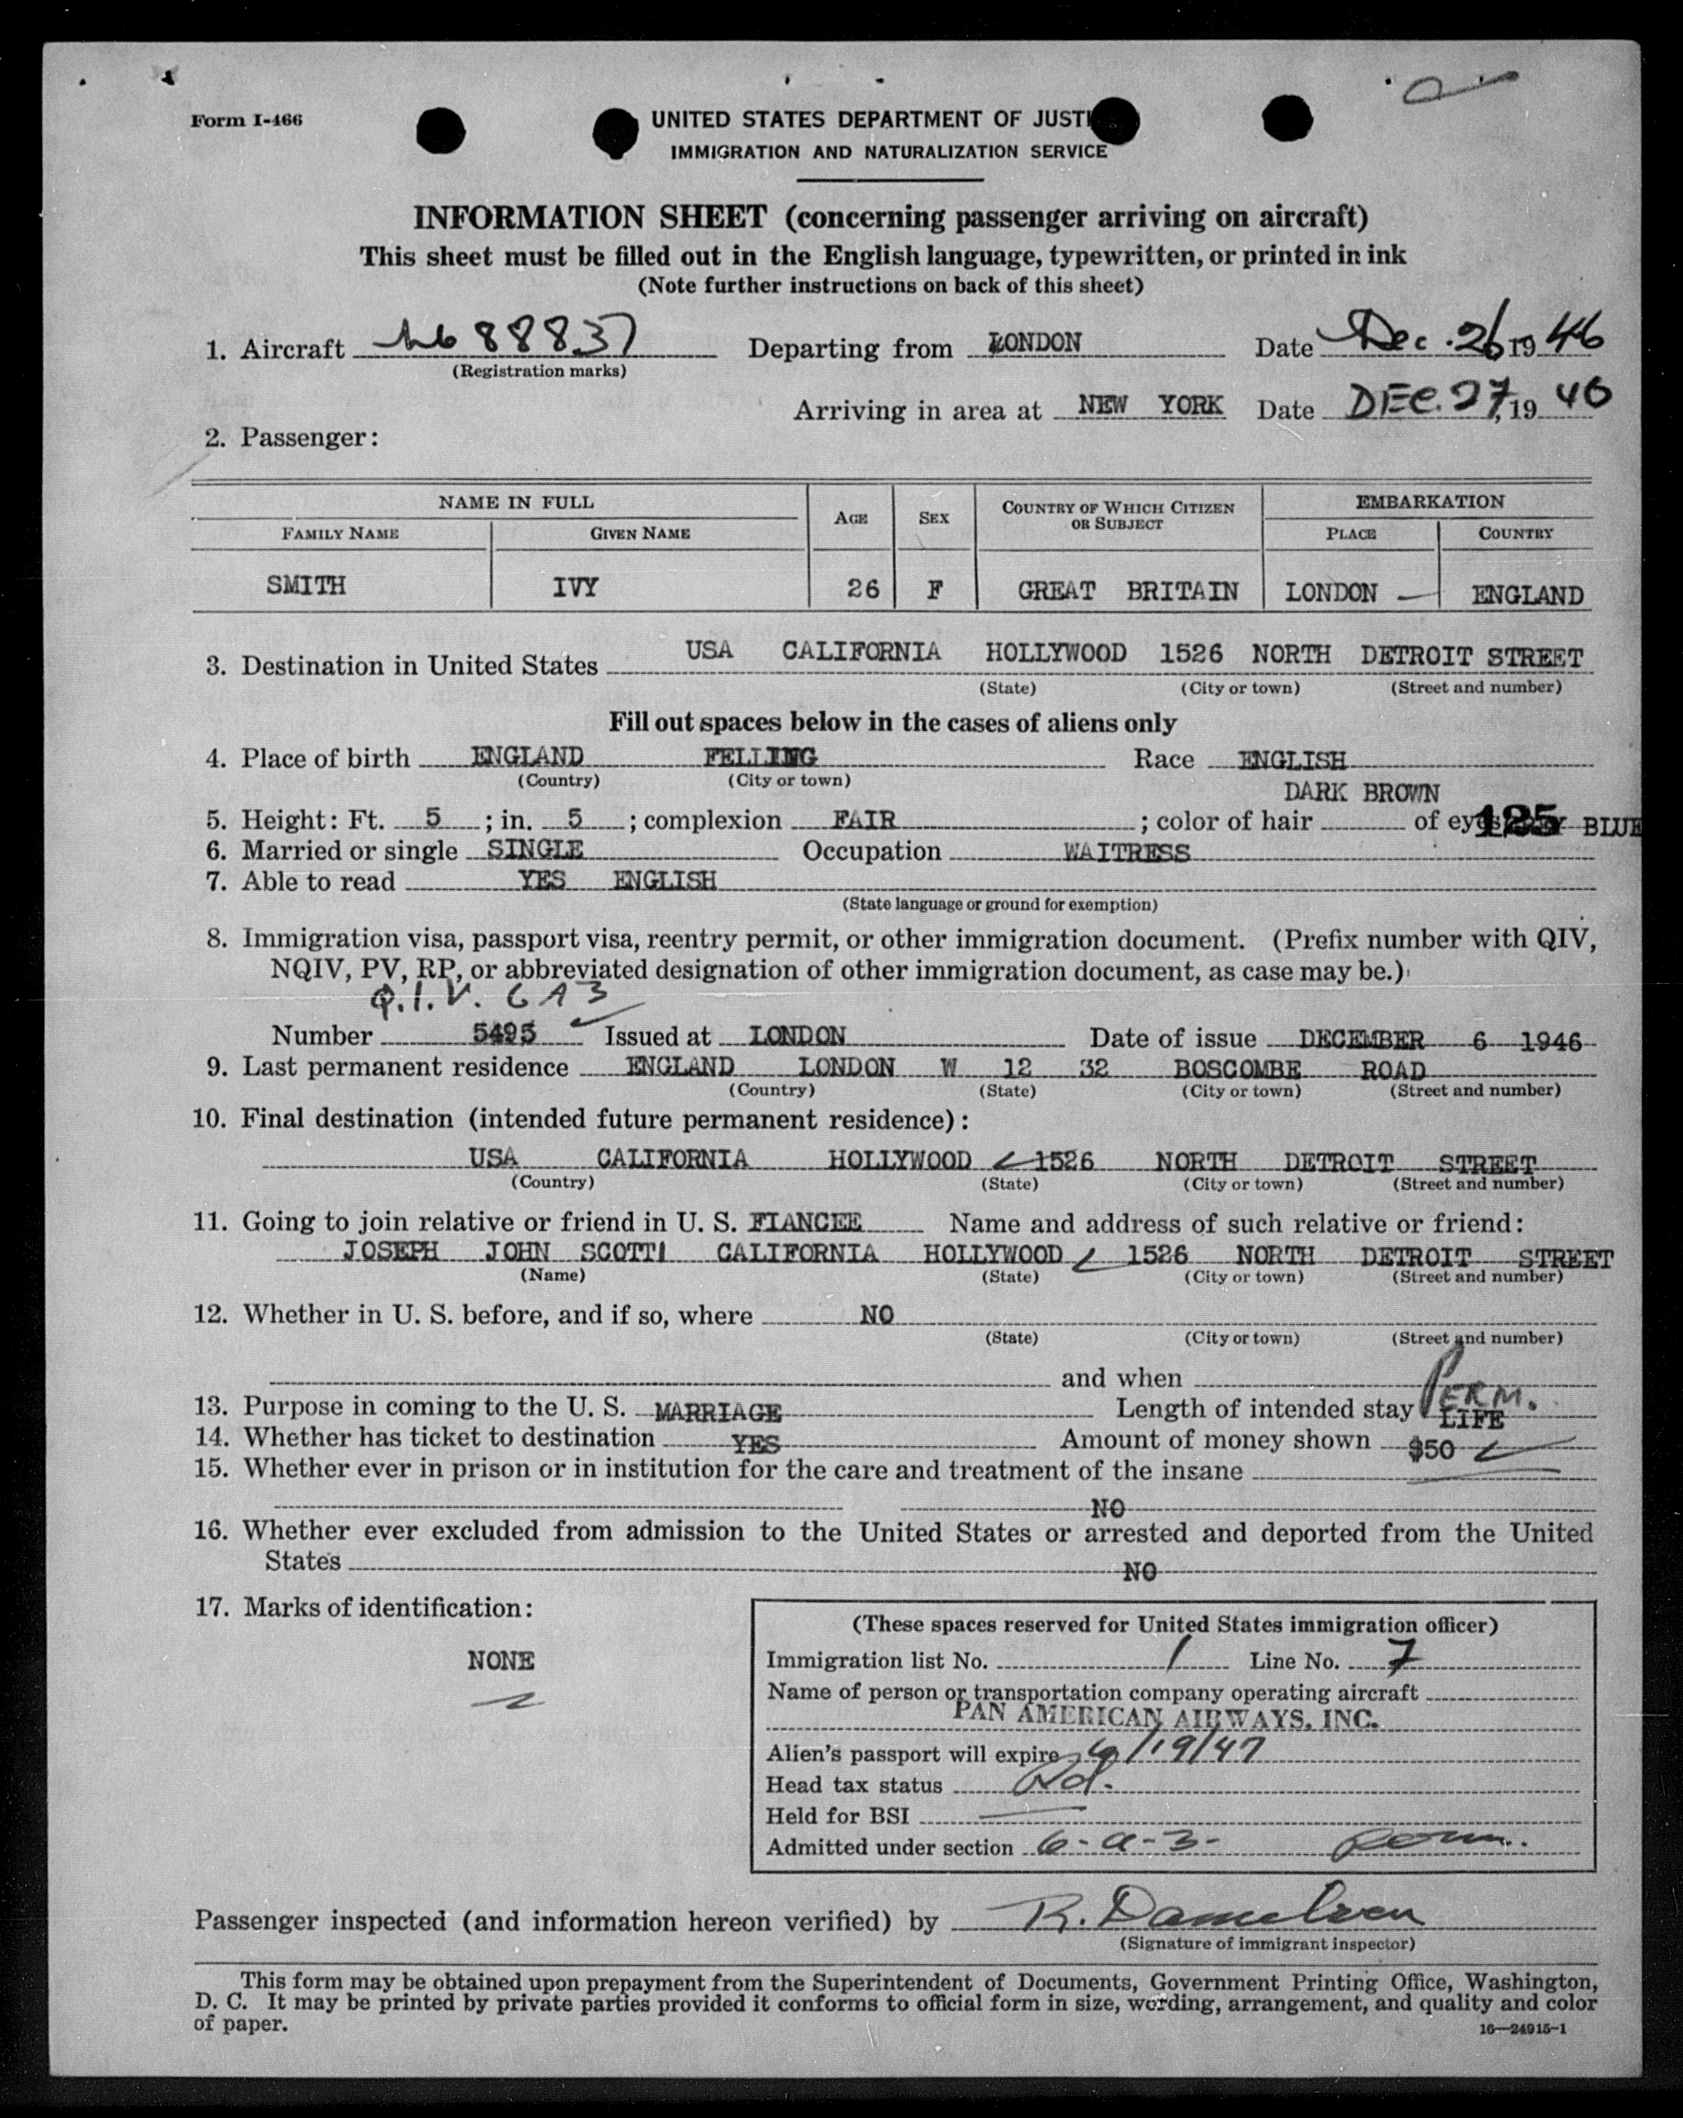 Form I-466
UNITED STATES DEPARTMENT OF JUSTI
IMMIGRATION AND NATURALIZATION SERVICE
INFORMATION SHEET (concerning passenger arriving on aircraft)
This sheet must be filled out in the English language, typewritten, or printed in ink
(Note further instructions on back of this sheet)
1. Aircraft 88837 Departing from LONDON Date Dec. 26 19 46
(Registration marks)
Arriving in area at NEW YORK Date DEC. 27, 19 46
2. Passenger:
NAME IN FULL AGE SEX COUNTRY OF WHICH CITIZEN OR SUBJECT EMBARKATION
FAMILY NAME GIVEN NAME PLACE COUNTRY
SMITH IVY 26 F GREAT BRITAIN LONDON ENGLAND
3. Destination in United States USA CALIFORNIA HOLLYWOOD 1526 NORTH DETROIT STREET
(State) (City or town) (Street and number)
Fill out spaces below in the cases of aliens only
4. Place of birth ENGLAND FELLING Race ENGLISH
(Country) (City or town)
DARK BROWN
5. Height: Ft. 5 ; in. 5 ; complexion FAIR ; color of hair of eyes 125 BLUE
6. Married or single SINGLE Occupation WAITRESS
7. Able to read YES ENGLISH
(State language or ground for exemption)
8. Immigration visa, passport visa, reentry permit, or other immigration document. (Prefix number with QIV,
NQIV, PV, RP, or abbreviated designation of other immigration document, as case may be.)
Q.I.V. 6 A 3
Number 5495 Issued at LONDON Date of issue DECEMBER 6 1946
9. Last permanent residence ENGLAND LONDON W 12 32 BOSCOMBE ROAD
(Country) (State) (City or town) (Street and number)
10. Final destination (intended future permanent residence):
USA CALIFORNIA HOLLYWOOD 1526 NORTH DETROIT STREET
(Country) (State) (City or town) (Street and number)
11. Going to join relative or friend in U. S. FIANCEE Name and address of such relative or friend:
JOSEPH JOHN SCOTTI CALIFORNIA HOLLYWOOD 1526 NORTH DETROIT STREET
(Name) (State) (City or town) (Street and number)
12. Whether in U. S. before, and if so, where NO
(State) (City or town) (Street and number)
and when
13. Purpose in coming to the U. S. MARRIAGE Length of intended stay PERM. LIFE
14. Whether has ticket to destination YES Amount of money shown $50
15. Whether ever in prison or in institution for the care and treatment of the insane
NO
16. Whether ever excluded from admission to the United States or arrested and deported from the United
States NO
17. Marks of identification:
NONE
(These spaces reserved for United States immigration officer)
Immigration list No. 1 Line No. 7
Name of person or transportation company operating aircraft
PAN AMERICAN AIRWAYS, INC.
Alien's passport will expire 9/19/47
Head tax status
Held for BSI
Admitted under section 6-a-3- perm.
Passenger inspected (and information hereon verified) by
(Signature of immigrant inspector)
This form may be obtained upon prepayment from the Superintendent of Documents, Government Printing Office, Washington,
D. C. It may be printed by private parties provided it conforms to official form in size, wording, arrangement, and quality and color
of paper.
16—24915-1